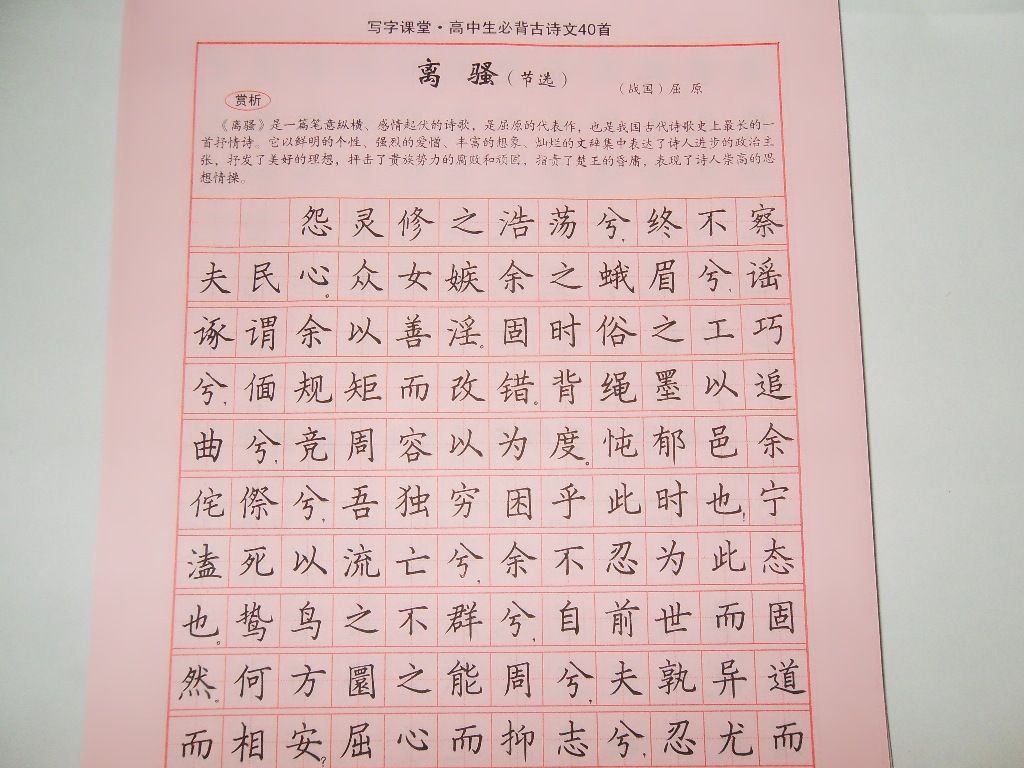 写字课堂·高中生必背古诗文40首
离骚(节选)
(战国)屈原
赏析
《离骚》是一篇笔意纵横、感情起伏的诗歌，是屈原的代表作，也是我国古代诗歌史上最长的一
首抒情诗。它以鲜明的个性、强烈的爱憎、丰富的想象、灿烂的文辞集中表达了诗人进步的政治主
张，抒发了美好的理想，抨击了贵族势力的腐败和顽固，指责了楚王的昏庸，表现了诗人崇高的思
想情操。
怨灵修之浩荡兮，终不察
夫民心。众女嫉余之蛾眉兮，谣
诼谓余以善淫。固时俗之工巧
兮，偭规矩而改错。背绳墨以追
曲兮，竞周容以为度。忳郁邑余
侘傺兮，吾独穷困乎此时也！宁
溘死以流亡兮，余不忍为此态
也。鸷鸟之不群兮，自前世而固
然。何方圜之能周兮，夫孰异道
而相安？屈心而抑志兮，忍尤而